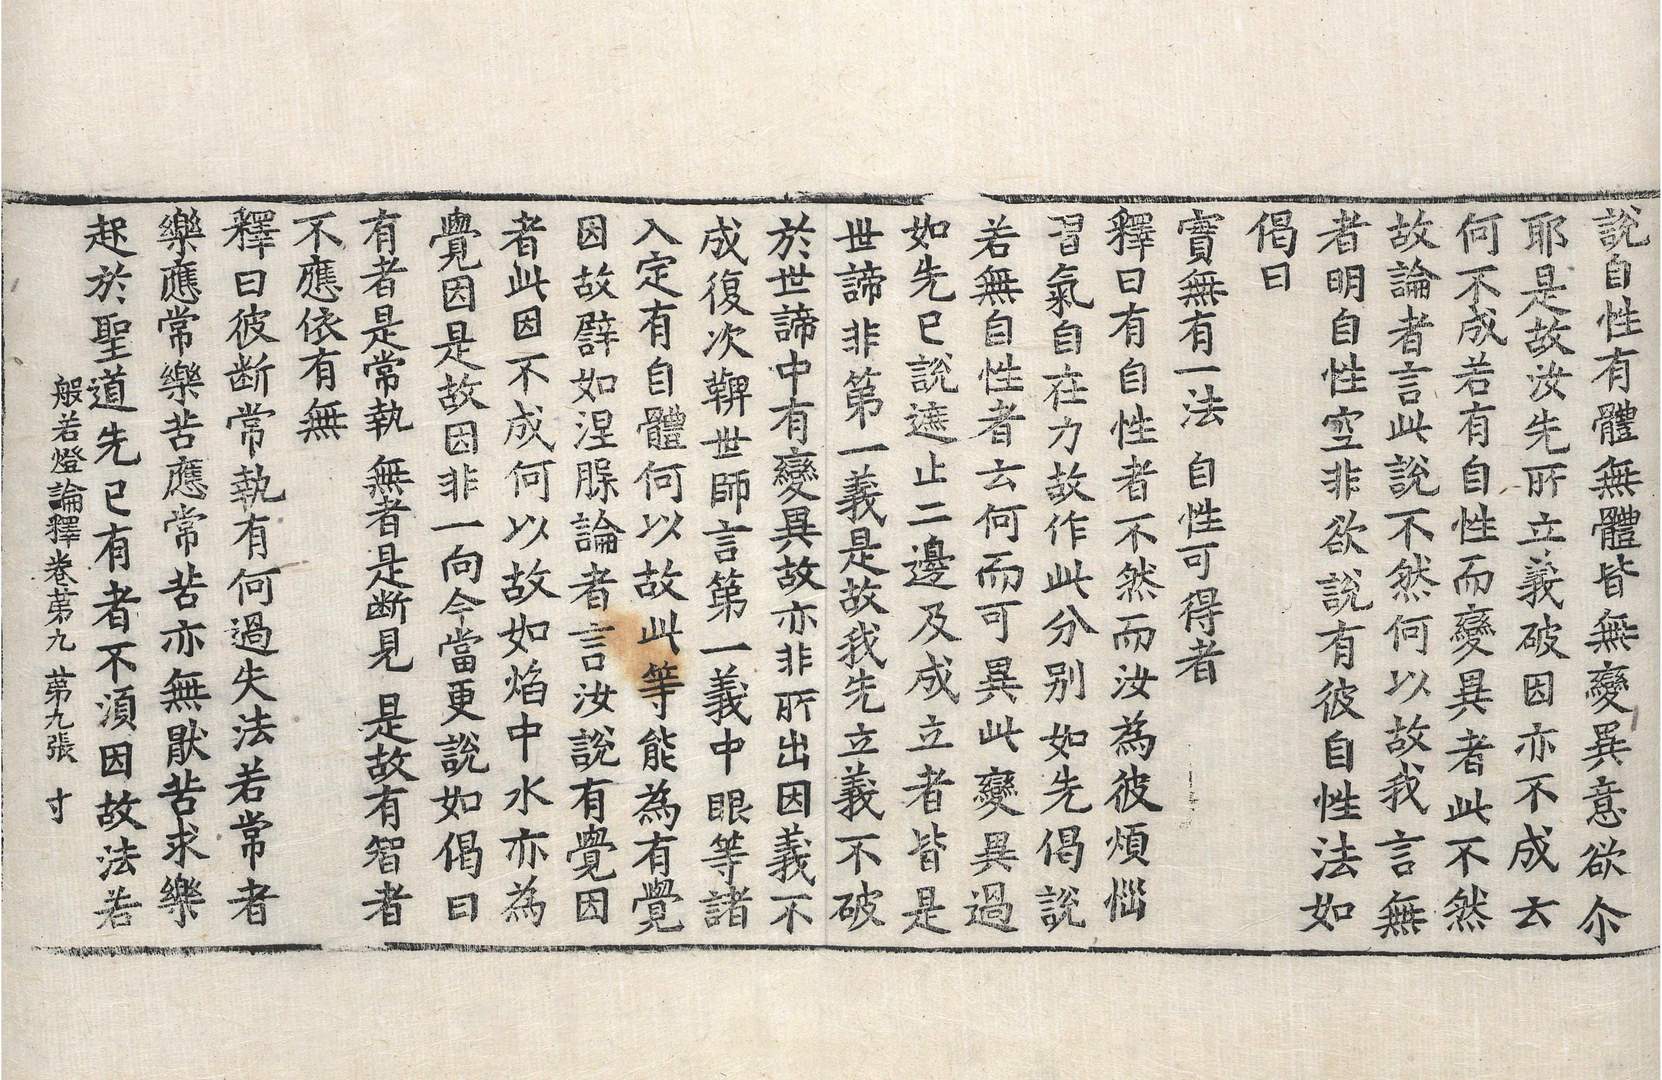 說自性有體無體皆無變異意欲尒
耶是故汝先所立義破因亦不成云
何不成若有自性而變異者此不然
故論者言此說不然何以故我言無
者明自性空非欲說有彼自性法如
偈曰
實無有一法 自性可得者
釋曰有自性者不然而汝為彼煩惱
習氣自在力故作此分別如先偈說
若無自性者云何而可異此變異過
如先已說遮止二邊及成立者皆是
世諦非第一義是故我先立義不破
於世諦中有變異故亦非所出因義不
成復次鞞世師言第一義中眼等諸
入定有自體何以故此等能為有覺
因故譬如涅槃論者言汝說有覺因
者此因不成何以故如焰中水亦為
覺因是故因非一向今當更說如偈曰
有者是常執 無者是断見 是故有智者
不應依有無
釋曰彼断常執有何過失法若常者
樂應常樂苦應常苦亦無猒苦求樂
起於聖道先已有者不湏因故法若
般若燈論釋卷苐九 苐九張 寸